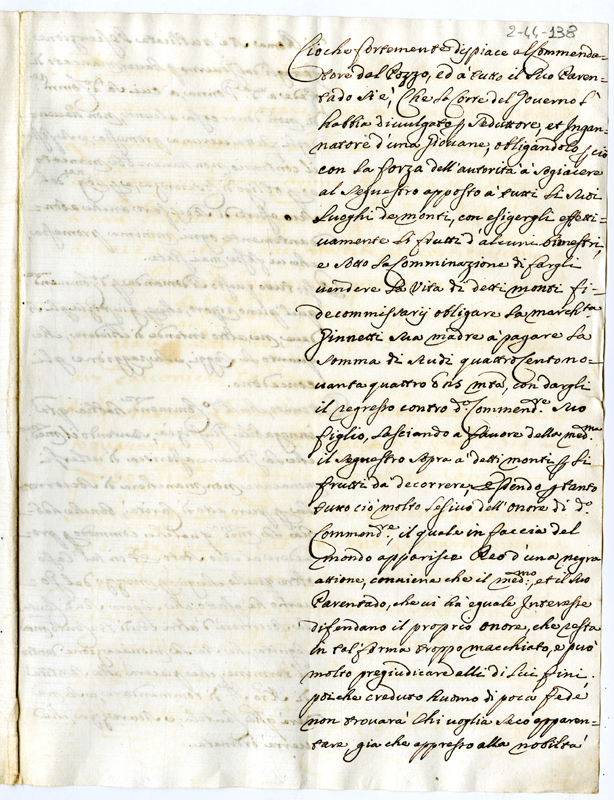 2-44-138
Cioche fortemente dispiace al Commenda-
tore dal Pozzo, ed à tutto il suo Paren-
tado si è, Che la Corte del Governo l'
habbia divulgato p seduttore, et Ingan-
natore d'una Giovane, obligandolo p ciò
con la forza dell'autorità à sogiacere
al sequestro apposto à tutti li suoi
Luoghi de monti, con esigergli effetti-
vamente li frutti d'alcuni bimestri,
e sotto la Comminazione di fargli
vendere la Vita di detti monti fi-
decommissarij obligare la march:sa
Ginnetti sua madre à pagare la
somma di scudi quattrocentono-
vanta quattro mta, con dargli
il regresso contro do: Commendre: suo
figlio, lasciando a favore della medma:
il sequestro sopra à detti monti p li
frutti da decorrere, essendo ptanto
tutto ciò molto lesivo dell'onore di do:
Commendre:, il quale in faccia del
mondo apparisce Reo d'una negra
attione, conviene che il medmo:, et il suo
Parentado, che vi hà eguale Interesse
difendano il proprio onore, che resta
in tal forma troppo macchiato, e può
molto pregiudicare alli di lui fini.
poiche creduto huomo di poca fede
non trovarà Chi voglia seco apparen-
tare, già che appresso alla nobiltà